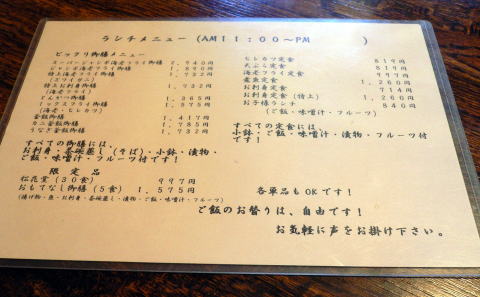 ランチメニュー (AM11:00〜PM )
ビックリ御膳メニュー
スーパージャンボ海老フライ御膳 2,940円
ジャンボ海老フライ御膳 1,890円
特上海老フライ御膳 1,732円
特上お刺身御膳 1,732円
とんかつ御膳 1,365円
ミックスフライ御膳 1,575円
(海老・ヒレカツ)
釜飯御膳 1,417円
カニ釜飯御膳 1,785円
うなぎ釜飯御膳 1,732円
すべての御膳には、
お刺身・茶碗蒸し(そば)・小鉢・漬物・
ご飯・味噌汁・フルーツ付です!
限定品
松花堂(30食) 997円
おもてなし御膳(5食) 1,575円
(揚げ物・魚・お刺身・茶碗蒸し・漬物・ご飯・味噌汁・フルーツ)
ヒレカツ定食 819円
天ぷら定食 819円
海老フライ定食 997円
煮魚定食 1,260円
お刺身定食 714円
お刺身定食(特上) 1,260円
お子様ランチ 840円
(ご飯・味噌汁・フルーツ)
すべての定食には、
小鉢・ご飯・味噌汁・漬物・フルーツ付
です!
各単品もOKです!
ご飯のお替りは、自由です!
お気軽に声をお掛け下さい。